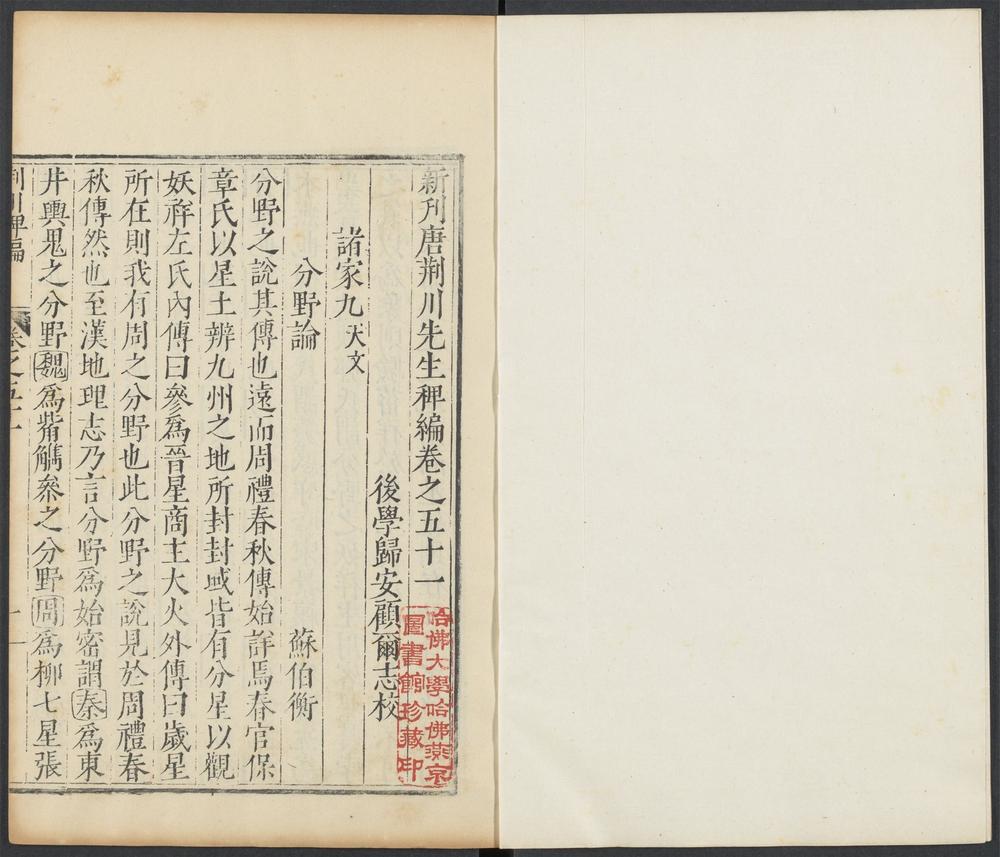 新刋唐荆川先生稗編卷之五十一
後學歸安顧爾志校
諸家九 天文
分野論
蘇伯衡
分野之說其傳也遠而周禮春秋傳始詳焉春官保
章氏以星土辨九州之地所封封域皆有分星以觀
妖祥左氏內傳曰參爲晉星商主大火外傳曰歲星
所在則我有周之分野也此分野之說見於周禮春
秋傳然也至漢地理志乃言分野爲始密謂秦爲東
井輿鬼之分野魏爲觜觿參之分野周爲柳七星張
荆川稗編
卷之五十一
一
哈佛大學哈佛燕京
圖書館珍藏印